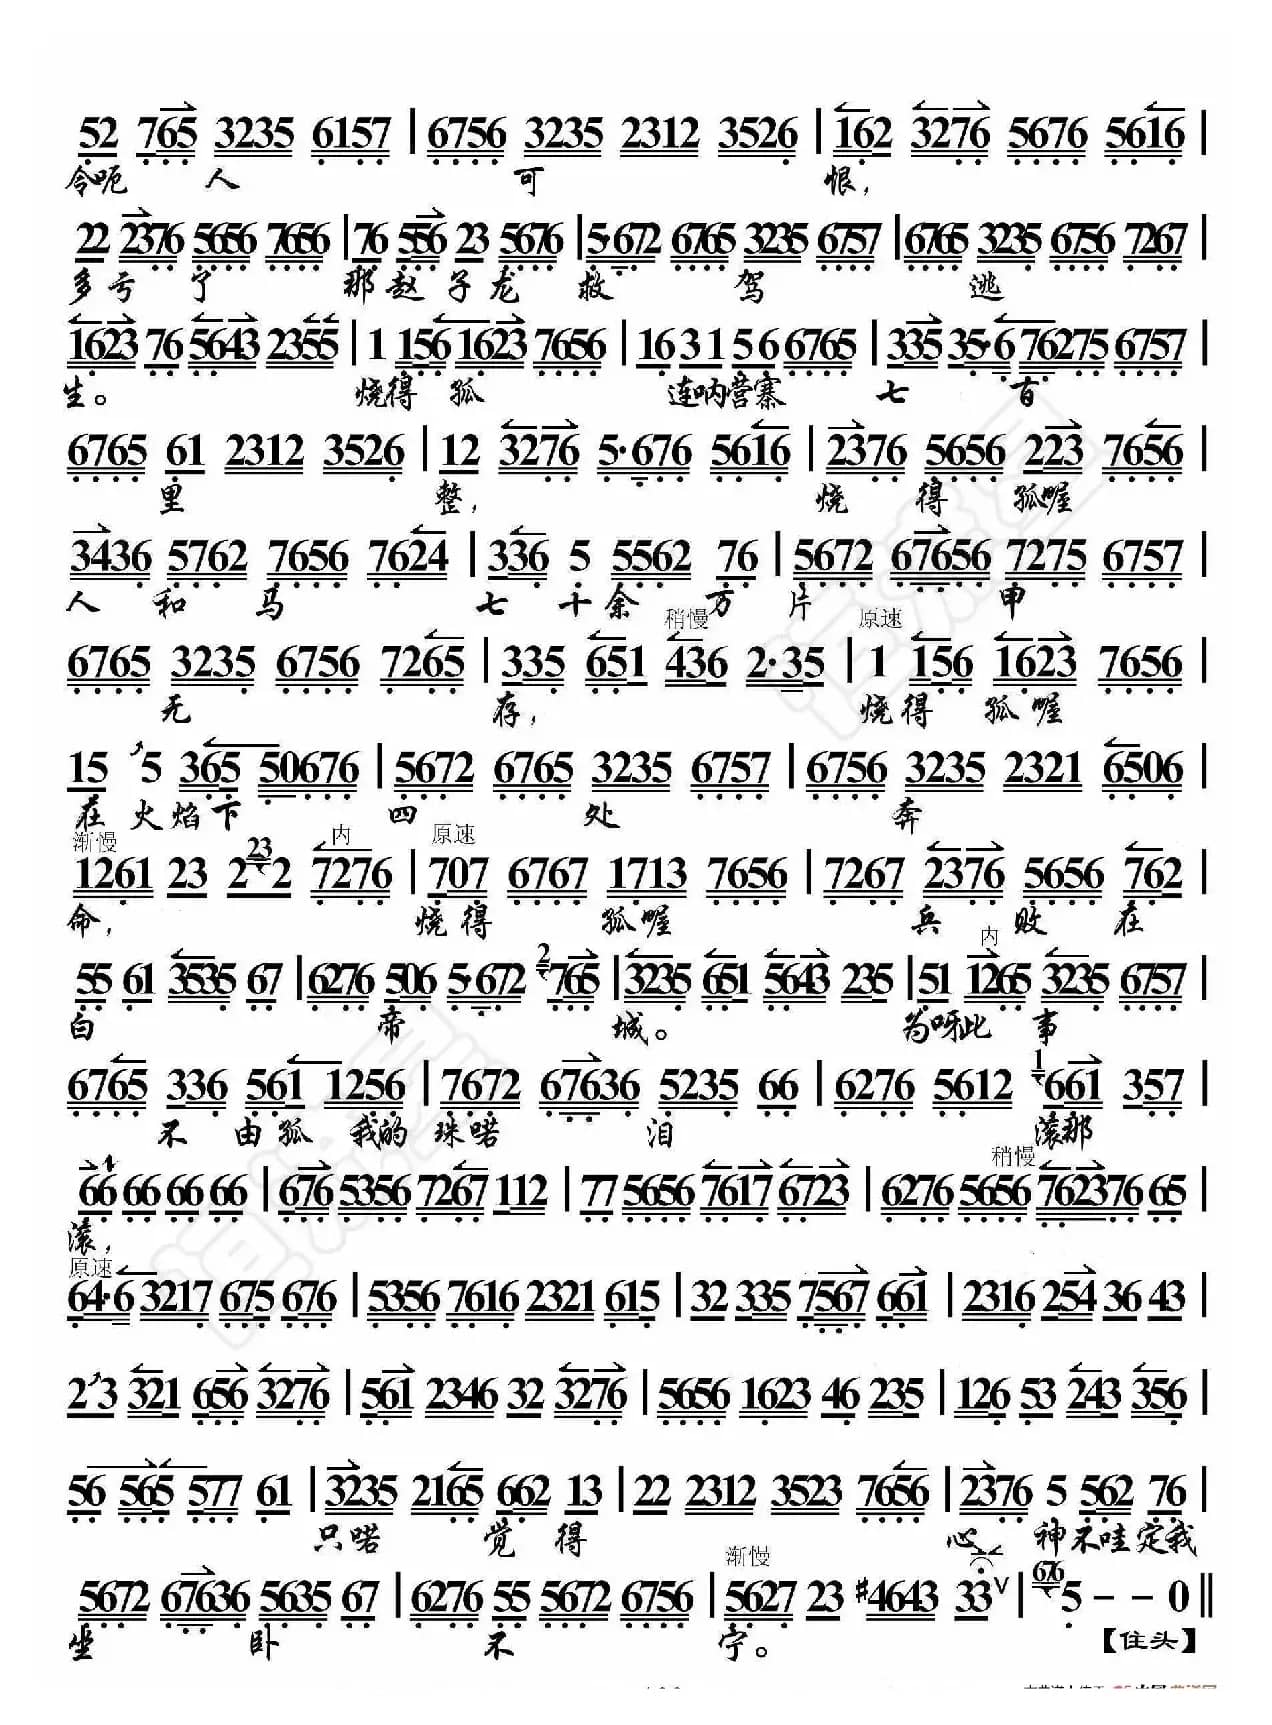 52 765 3235 6157 | 6756 3235 2312 3526 | 162 3276 5676 5616 |
令呃 人 可 恨，
22 2376 5656 7656 | 76 556 23 5676 | 5·672 6765 3235 6757 | 6765 3235 6756 7267 |
多亏 了 那赵 子龙 救 驾 逃
1623 76 5643 2355 | 1 156 1623 7656 | 16 3 1 5 6 6765 | 335 35·6 76275 6757 |
生。 烧得 孤 连呐营寨 七 百
6765 61 2312 3526 | 12 3276 5·676 5616 | 2376 5656 223 7656 |
里 整， 烧 得 孤喔
3436 5762 7656 7624 | 336 5 5562 76 | 5672 67656 7275 6757 |
人 和 马 七 十余 万 片 甲
稍慢 原速
6765 3235 6756 7265 | 335 651 436 2·35 | 1 156 1623 7656 |
无 存， 烧得 孤喔
15 5 365 50676 | 5672 6765 3235 6757 | 6756 3235 2321 6506 |
在火焰下 四 处 奔
渐慢 内 原速
1261 23 2 23 2 7276 | 707 6767 1713 7656 | 7267 2376 5656 762 |
命， 烧得 孤喔 兵 败 在
内
55 61 3535 67 | 6276 506 5·672 2 765 | 3235 651 5643 235 | 51 1265 3235 6757 |
白 帝 城。 为呀此 事
6765 336 561 1256 | 7672 67636 5235 66 | 6276 5612 1 661 357 |
不 由孤 我的 珠喏 泪 滚那
稍慢
66 66 66 66 | 676 5356 7267 112 | 77 5656 7617 6723 | 6276 5656 762376 65 |
滚，
原速
64·6 3217 675 676 | 5356 7616 2321 615 | 32 335 7567 661 | 2316 254 36 43 |
2 3 321 656 3276 | 561 2346 32 3276 | 5656 1623 46 235 | 126 53 243 356 |
56 565 577 61 | 3235 2165 662 13 | 22 2312 3523 7656 | 2376 5 562 76 |
只喏 觉 得 心 神不哇定我
渐慢
5672 67636 5635 67 | 6276 55 5672 6756 | 5627 23 #4643 33 ∨ | 676 5 - - 0 ‖
坐 卧 不 宁。 【住头】